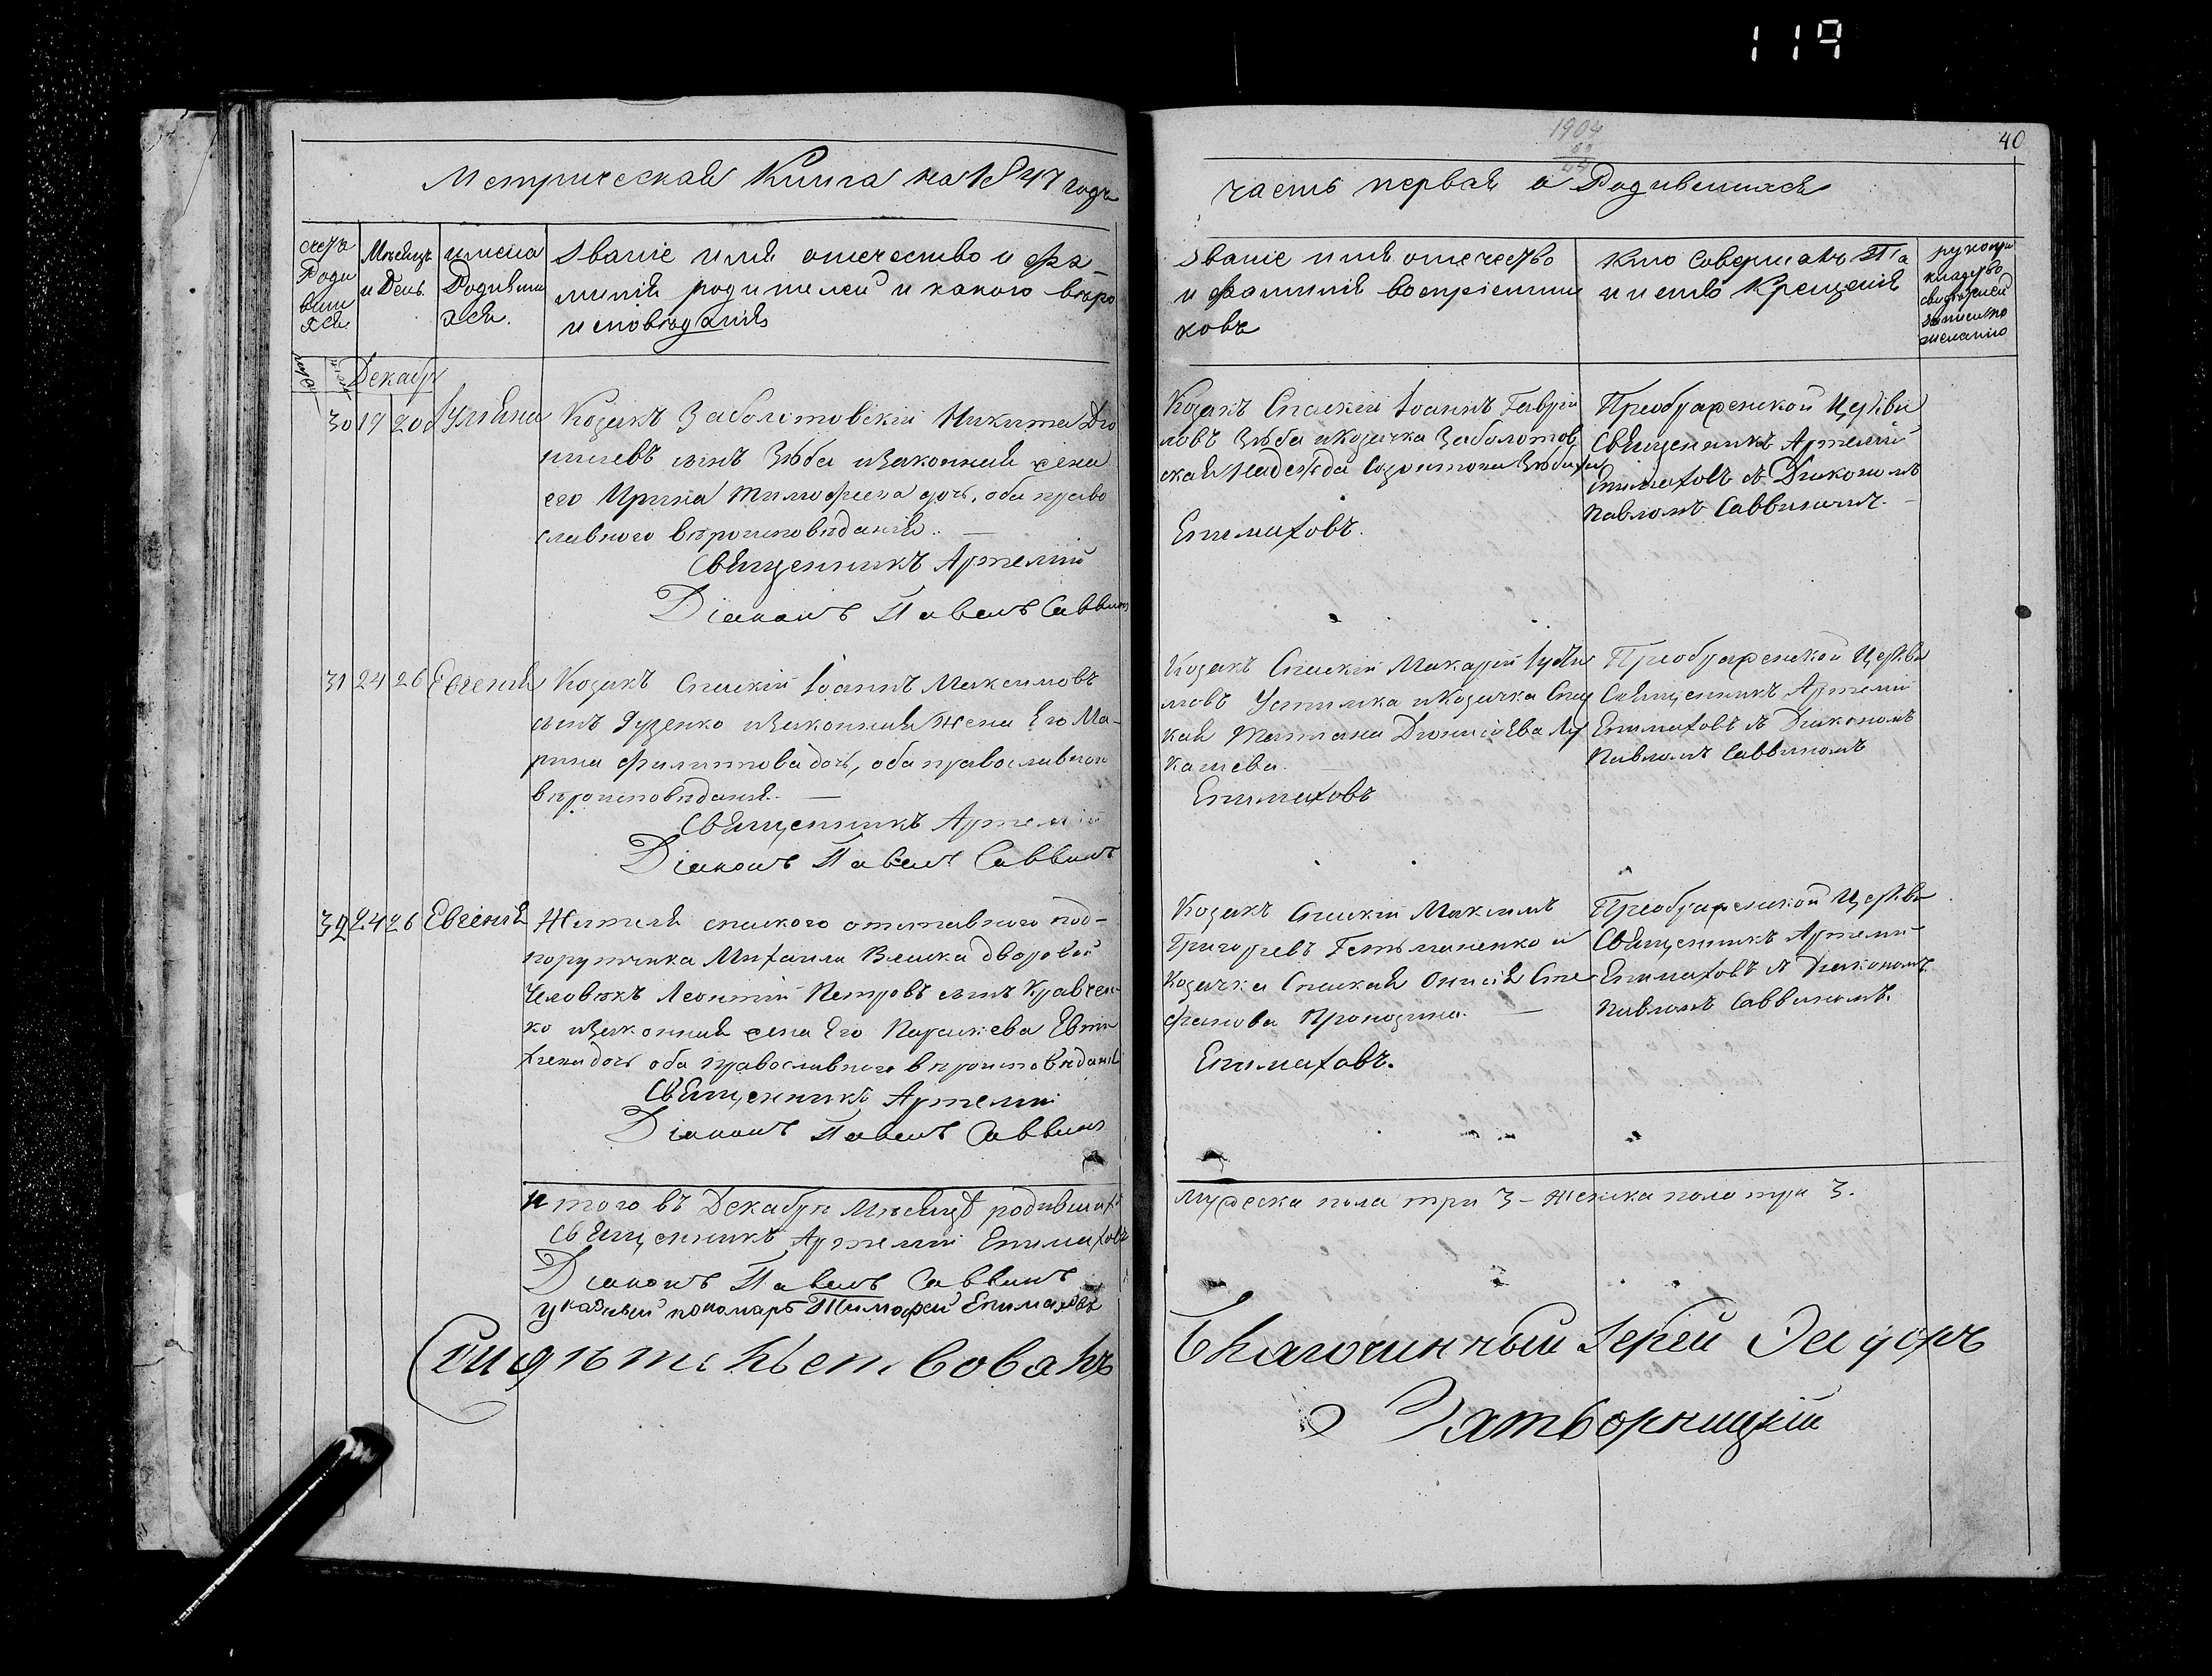 119
1904
40
Метрическая Книга на 1847 годъ
часть первая о Родившихся
счетъ
Роди
вши
хся
Мѣсяцъ
и День
имена
Родивши
хся.
званіе имя отечество и фа-
милія родителей и какого вѣро
исповѣданія
званіе имя отечество
и фамилія воспріемни
ковъ
кто совершалъ Та
инство Крещенія
рукопри
кладство
свидѣтелей
записи по
желанію
Декабр
30 19 20 Іуліана
Козакъ Заболотовскій Никита Діо
нисіевъ сынъ Зюба изаконная жена
его Ирина Тимофеева дочь, оба право
славного вѣроисповѣданія.
Священникъ Артемій
Діаконъ Павелъ Саввинъ
Козакъ Спаскій Іоаннъ Гаврій
ловъ Зюба и Козачка Заболотов
ская Надежда Созонтова Зюбиха
Епимаховъ.
Преображенской Церкви
Священникъ Артемій
Епимаховъ съ Діакономъ
Павломъ Саввинымъ.
31 24 26 Евгенія
Козакъ Спаскій Іоаннъ Максимовъ
сынъ Гузенко изаконная жена Его Ма-
рина Филиппова дочь, оба православного
вѣроисповѣданія.
Священникъ Артемій
Діаконъ Павелъ Саввинъ
Козакъ Спаскій Макарій
мовъ Устимка и Козачка Спас
кая Татіана Діонисіева Лу
кашева.
Епимаховъ
Преображенской Церкви
Священникъ Артемій
Епимаховъ съ Діакономъ
Павломъ Саввиномъ
32 24 26 Евгенія
Жителя спаского отставного под-
порутчика Михаила Велика дворовой
Человѣкъ Леонтій Петровъ сынъ Кравчен-
ко изаконная жена Его Параскева Евти
хіева дочь оба православного вѣроисповѣданія
Священникъ Артемій
Діаконъ Павелъ Саввинъ
Козакъ Спаскій Максимъ
Григорьевъ Гетьманенко и
Козачка Спаская Онисія Сте
фанова Прокодина.
Епимаховъ.
Преображенской Церкви
Священникъ Артемій
Епимаховъ съ Діакономъ
Павломъ Саввиномъ.
Итого въ Декабрѣ Мѣсяцѣ родившихъ
Священникъ Артемій Епимаховъ
Діаконъ Павелъ Саввинъ
указный пономарь Тимофей Епимаховъ
мужеска пола три 3 - женска пола три 3.
Свидѣтельствовалъ
Благочинный Іерей Ѳеодоръ
Затворницкій